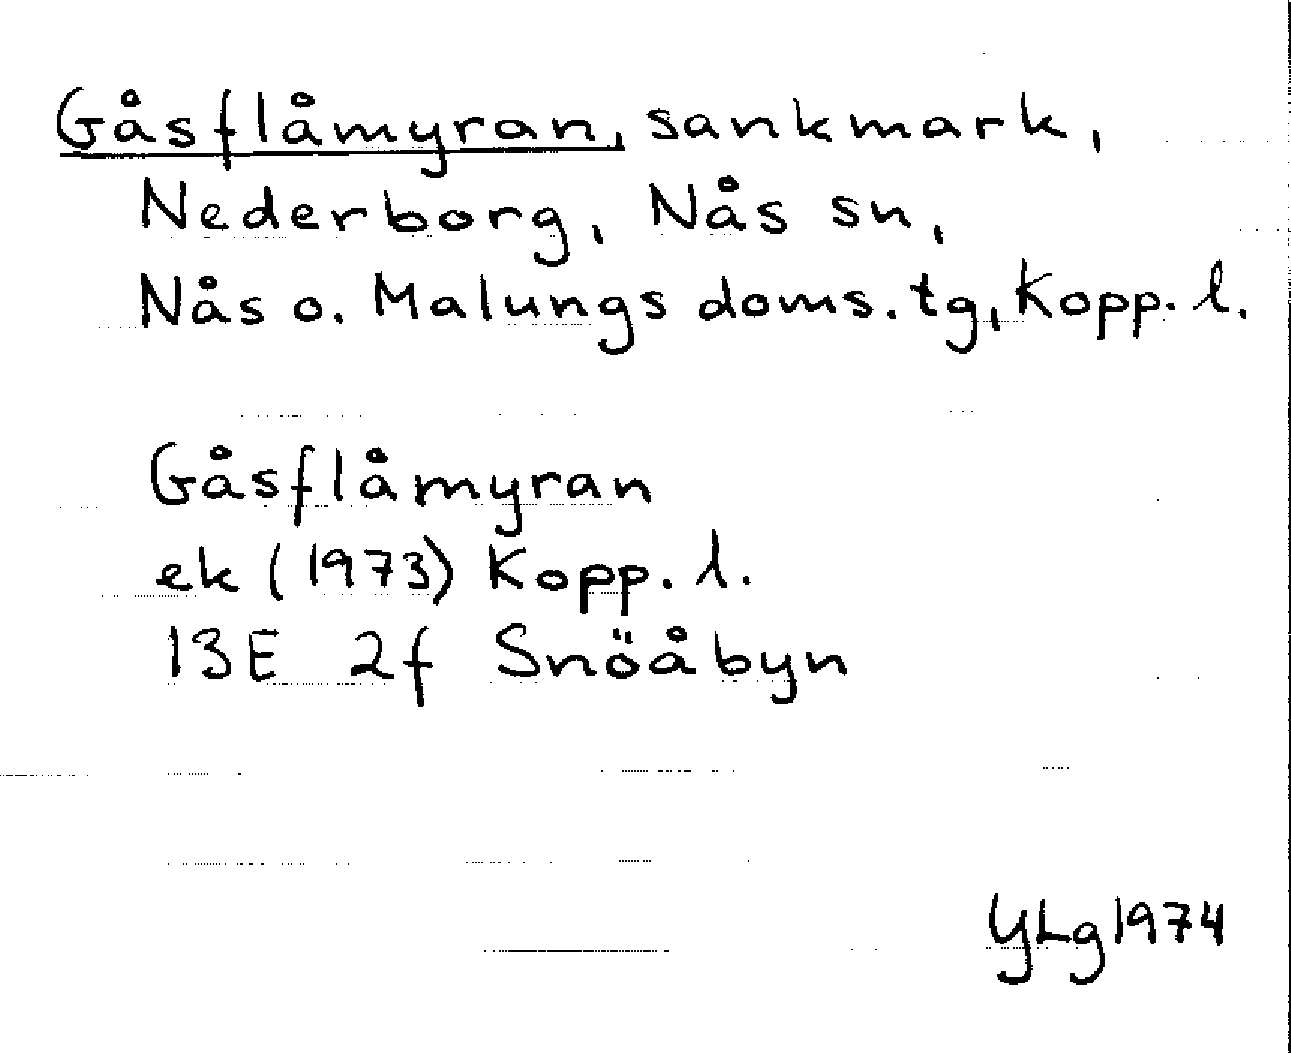 Gåsflåmyran, sankmark,
Nederborg, Nås sn,
Nås o. Malungs doms. tg, Kopp. l.
Gåsflåmyran
ek (1973) Kopp. l.
13E 2f Snöåbyn
YLg 1974